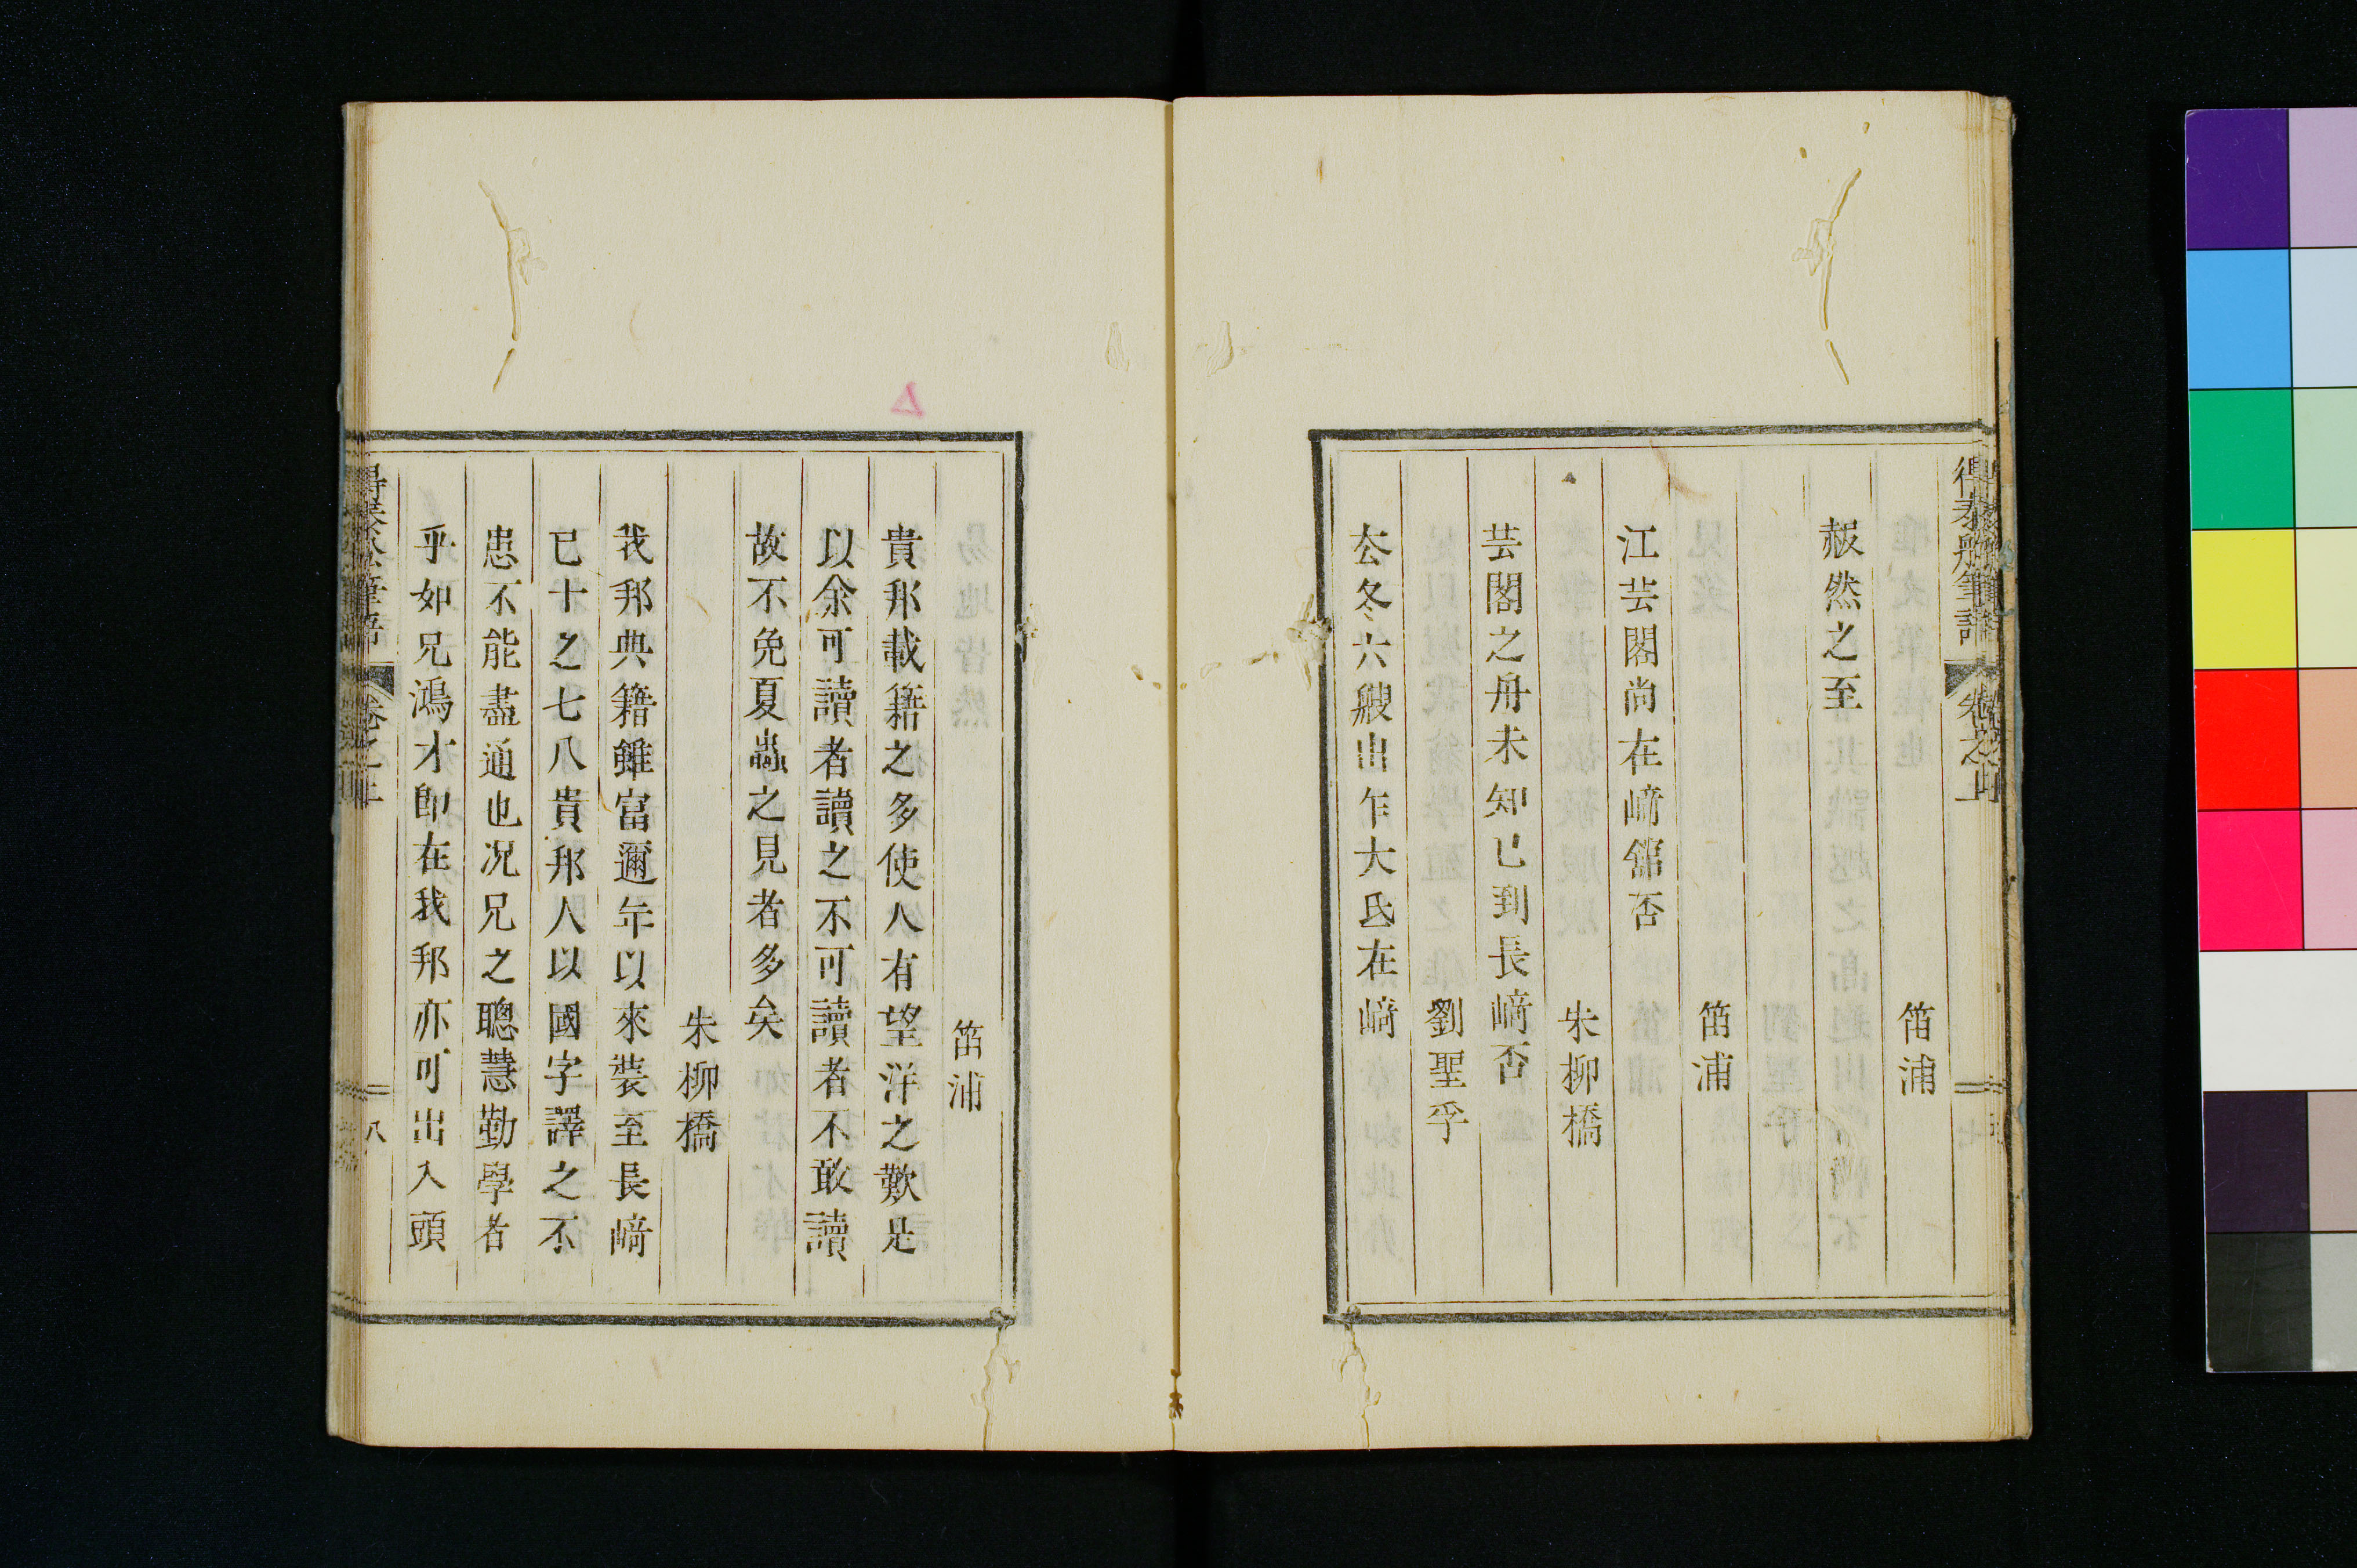 得泰船筆語 卷之上
笛浦
赧然之至
笛浦
江芸閣尚在﨑館否
朱柳橋
芸閣之舟未知已到長﨑否
劉聖孚
去冬六艘出乍大氐在﨑
笛浦
貴邦載籍之多使人有望洋之歎是
以余可讀者讀之不可讀者不敢讀
故不免夏蟲之見者多矣
朱柳橋
我邦典籍雖富邇年以來裝至長﨑
已十之七八貴邦人以國字譯之不
患不能盡通也况兄之聰慧勤學者
乎如兄鴻才卽在我邦亦可出入頭
得泰船筆語 卷之上 八